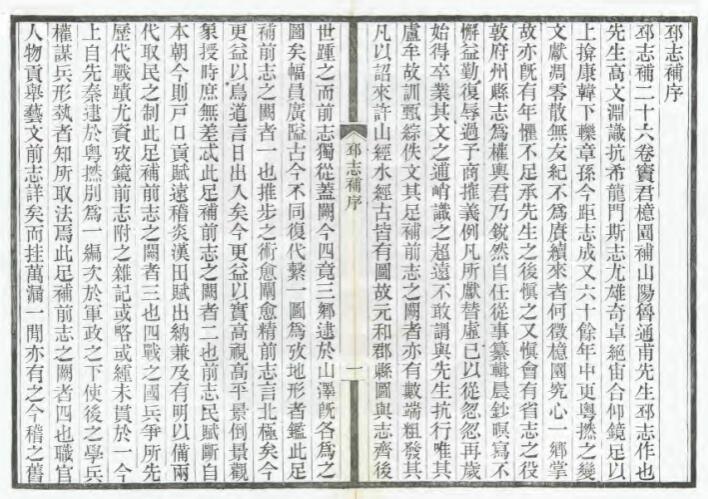 邳志補序
邳志補二十六卷竇君檍園補山陽魯通甫先生邳志作也
先生高文淵識抗希龍門斯志尤雄奇卓絕宙合仰鏡足以
上揜康韓下轢章孫今距志成又六十餘年中更粵撚之變
文獻凋零散無友紀不爲賡續來者何徵檍園究心一鄉掌
故亦旣有年懼不足承先生之後愼之又愼會有省志之役
敦府州縣志爲權輿君乃銳然自任從事纂輯晨鈔暝寫不
懈益勤復辱過予商搉義例凡所獻替虛己以從忽忽再歲
始得卒業其文之遒峭識之超遠不敢謂與先生抗行唯其
廬牟故訓甄綜佚文其足補前志之闕者亦有數端粗發其
凡以詔來許山經水經古皆有圖故元和郡縣圖與志齊後
世踵之而前志獨從蓋闕今四竟三鄉逮於山澤旣各爲之
圖矣幅員廣隘古今不同復代繫一圖爲攷地形者鑑此足
補前志之闕者一也推步之術愈闡愈精前志言北極矣今
更益以鳥道言日出入矣今更益以實高視高平景倒景觀
象授時庶無差忒此足補前志之闕者二也前志民賦斷自
本朝今則戶口貢賦遠稽炎漢田賦出納兼及有明以備兩
代取民之制此足補前志之闕者三也四戰之國兵爭所先
歷代戰蹟尤資攷鏡前志附之雜記或略或緟未貫於一今
上自先秦逮於粵撚別爲一編次於軍政之下使後之學兵
權謀兵形埶者知所取法焉此足補前志之闕者四也職官
人物貢舉藝文前志詳矣而挂萬漏一閒亦有之今稽之舊
邳志補序
一